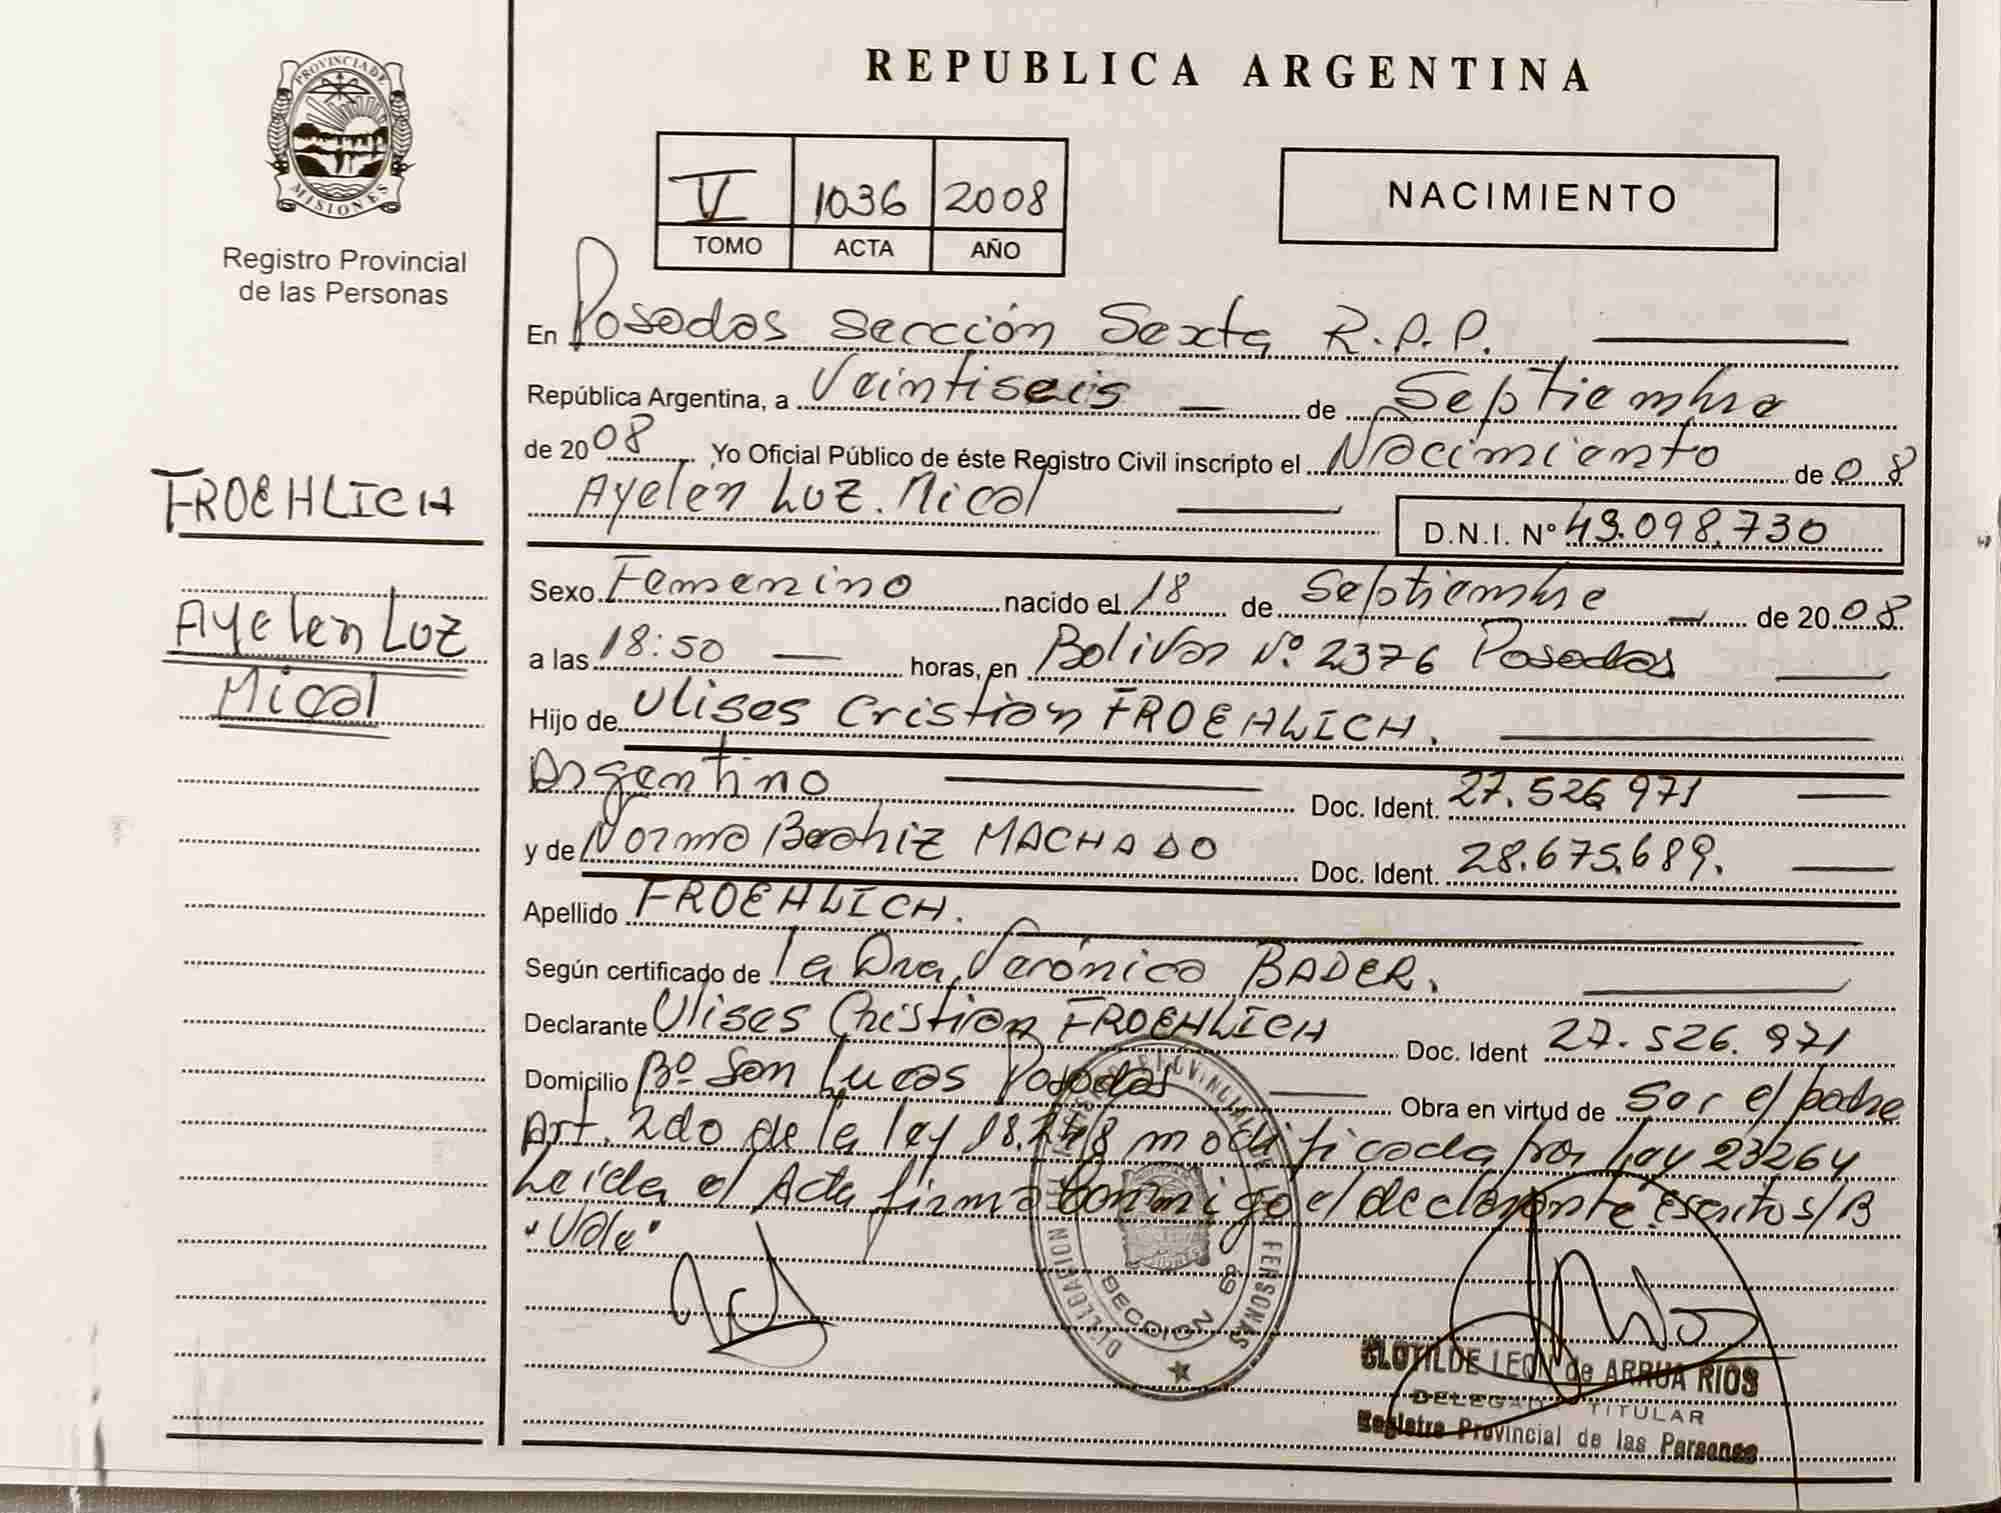 PROVINCIA DE
MISIONES
Registro Provincial
de las Personas
FROEHLICH
Ayelen Luz
Mical
REPUBLICA ARGENTINA
V 1036 2008
TOMO ACTA AÑO
NACIMIENTO
En Posadas Sección Sexta R.P.P.
República Argentina, a Veintiseis de Septiembre
de 2008 Yo Oficial Público de éste Registro Civil inscripto el Nacimiento de 08
Ayelen Luz. Mical
D.N.I. Nº 49.098.730
Sexo Femenino nacido el 18 de Septiembre de 2008
a las 18:50 horas, en Bolivar Nº 2376 Posadas
Hijo de Ulises Cristian FROEHLICH.
Argentino Doc. Ident. 27.526.971
y de Norma Beatriz MACHADO Doc. Ident. 28.675.689.
Apellido FROEHLICH.
Según certificado de la Dra. Verónica BADER.
Declarante Ulises Cristian FROEHLICH Doc. Ident 27.526.971
Domicilio Bº San Lucas Posadas Obra en virtud de Ser el padre
Art. 2do de la ley 18.248 modificada por ley 23264
Leída el Acta firma conmigo el declarante. Escrito s/B
"Vale"
DELEGACION PROVINCIAL PERSONAS
SECCION 6ª
CLOTILDE LEON de ARRUA RIOS
DELEGADO TITULAR
Registro Provincial de las Personas